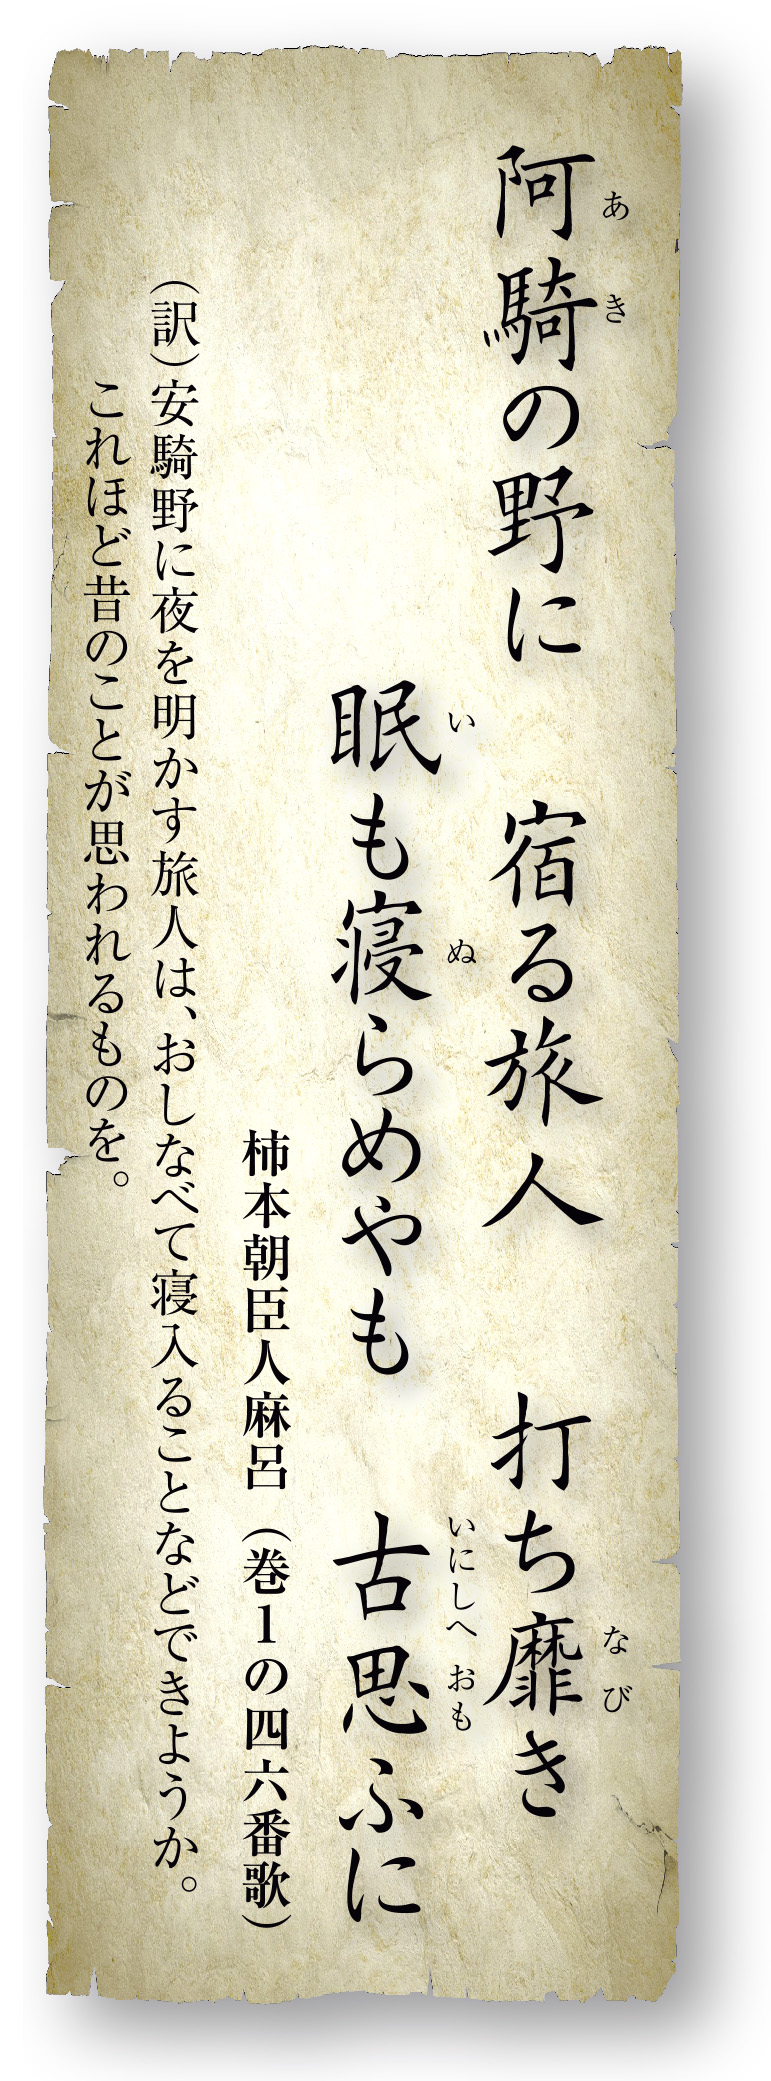 阿騎の野に　宿る旅人　打ち靡き
あ　き　なび
眠も寝らめやも　古思ふに
い　ぬ　いにしへ　おも
柿本朝臣人麻呂　（巻１の四六番歌）
（訳）安騎野に夜を明かす旅人は、おしなべて寝入ることなどできようか。
これほど昔のことが思われるものを。